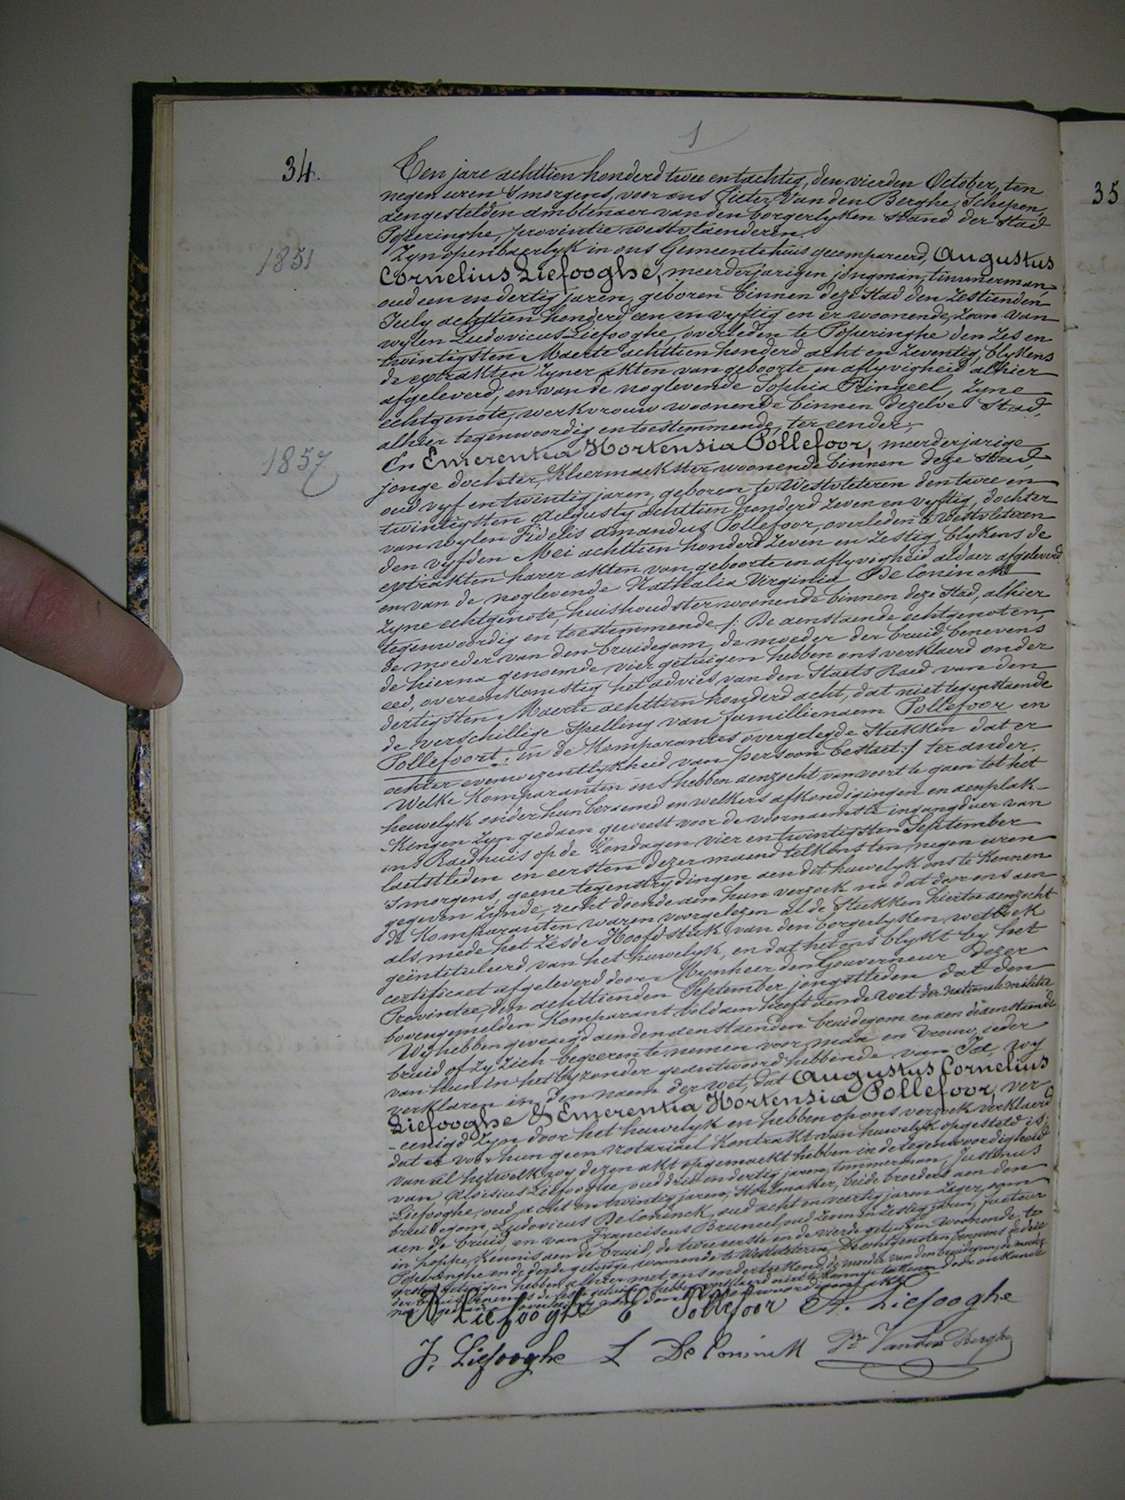 1
34.
Ten jare achttien honderd twee en tachtig, den vierden October, ten
negen uren s'morgens, voor ons Pieter Van den Berghe, Schepen,
aengestelden ambtenaer van den borgerlyken Stand der Stad
Poperinghe, provintie westvlaenderen.
Zyn openbaerlyk in ons Gemeentehuis gecompareerd, Augustus
1851
Cornelius Liefooghe, meerderjarigen jongman, timmerman,
oud een en dertig jaren, geboren binnen deze Stad den zestienden
July achttien honderd een en vyftig en er woonende, zoon van
wylen Ludovicus Liefooghe, overleden te Poperinghe den zes en
twintigsten Maerte achttien honderd acht en zeventig, blykens
de extrakten zyner akten van geboorte en aflyvigheid alhier
afgeleverd, en van de noglevende Sophia Ringeel, zyne
echtgenote, werkvrouw woonende binnen dezelve Stad,
alhier tegenwoordig en toestemmende, ter eender;
En Emerentia Hortensia Pollefoor, meerderjarige
1857
jonge dochter, kleermaekster woonende binnen deze Stad,
oud vyf en twintig jaren, geboren te Westvleteren den twee en
twintigsten Augusty achttien honderd zeven en vyftig, dochter
van wylen Fidelis Amandus Pollefoor, overleden te Westvleteren
den vyfden Mei achttien honderd zeven en zestig, blykens de
extrakten harer akten van geboorte en aflyvigheid aldaer afgeleverd
en van de noglevende Nathalia Virginia De Coninck
zyne echtgenote, huishoudster woonende binnen deze Stad, alhier
tegenwoordig en toestemmende /: De aenstaende echtgenoten,
de moeder van den bruidegom, de moeder der bruid benevens
de hierna genoemde vier getuigen hebben ons verklaerd onder
eed, overeenkomstig het advies van den Staets Raed van den
dertigsten Maerte achttien honderd acht, dat niet tegenstaende
de verschillige spelling van famillienaem Pollefoor en
Pollefoort, in de komparantes overgelegde stukken dat er
echter evenwezentlykheid van persoon bestaet :/ ter ander.
Welke Komparanten ons hebben aenzocht van voort te gaen tot het
huwelyk onder hun beraemd en welkers afkondigingen en aenplak-
kingen zyn gedaen geweest voor de voornaemste ingangdeur van
ons Raedhuis op de Zondagen vier en twintigsten September
laetstleden en eersten dezer maend telkens ten negen uren
s'morgens, geene tegenstrydingen aen dit huwelyk ons te kennen
gegeven zynde, recht doende aen hun verzoek na dat door ons aen
de Komparanten waren voorgelezen al de Stukken hiertoe aenzocht
als, mede het Zesde Hoofdstuk van den borgerlyken wetboek
geintituleerd van het huwelyk, en dat het ons blykt by het
certificaet afgeleverd door Mynheer den Gouverneur dezer
Provintie den achttienden September jongstleden dat den
bovengemelden Komparant voldaen heeft aen de wet der nationale militie
Wy hebben gevraegd aen den aenstaenden bruidegom en aen de aenstaende
bruid of zy zich begeeren te nemen voor man en vrouw, ieder
van hun in het byzonder geantwoord hebbende van Ja, wy
verklaren in den naem der wet, dat Augustus Cornelius
Liefooghe & Emerentia Hortensia Pollefoor, ver-
eenigd zyn door het huwelyk en hebben op ons verzoek verklaerd
dat er voor hun geen notariael kontrakt van huwelyk opgesteld is;
van al hetwelk wy dezen akt opgemaekt hebben in de tegenwoordigheid
van, Aloisius Liefooghe, oud drie en dertig jaren, timmerman, Justinus
Liefooghe, oud acht en twintig jaren, stoelmaker, beide broeders aen den
bruidegom, Ludovicus De Coninck, oud acht en veertig jaren zager, oom
aen de bruid, en van Franciscus Bruneel, oud zeven en zestig jaren, facteur
in hoppe, kennis aen de bruid, de twee eerste en de vierde getuigen woonende te
Poperinghe en de derde getuige woonende te Westvleteren.
A. Liefooghe E Pollefoor A. Liefooghe
J. Liefooghe L De Coninck Pr. Vanden Berghe
35